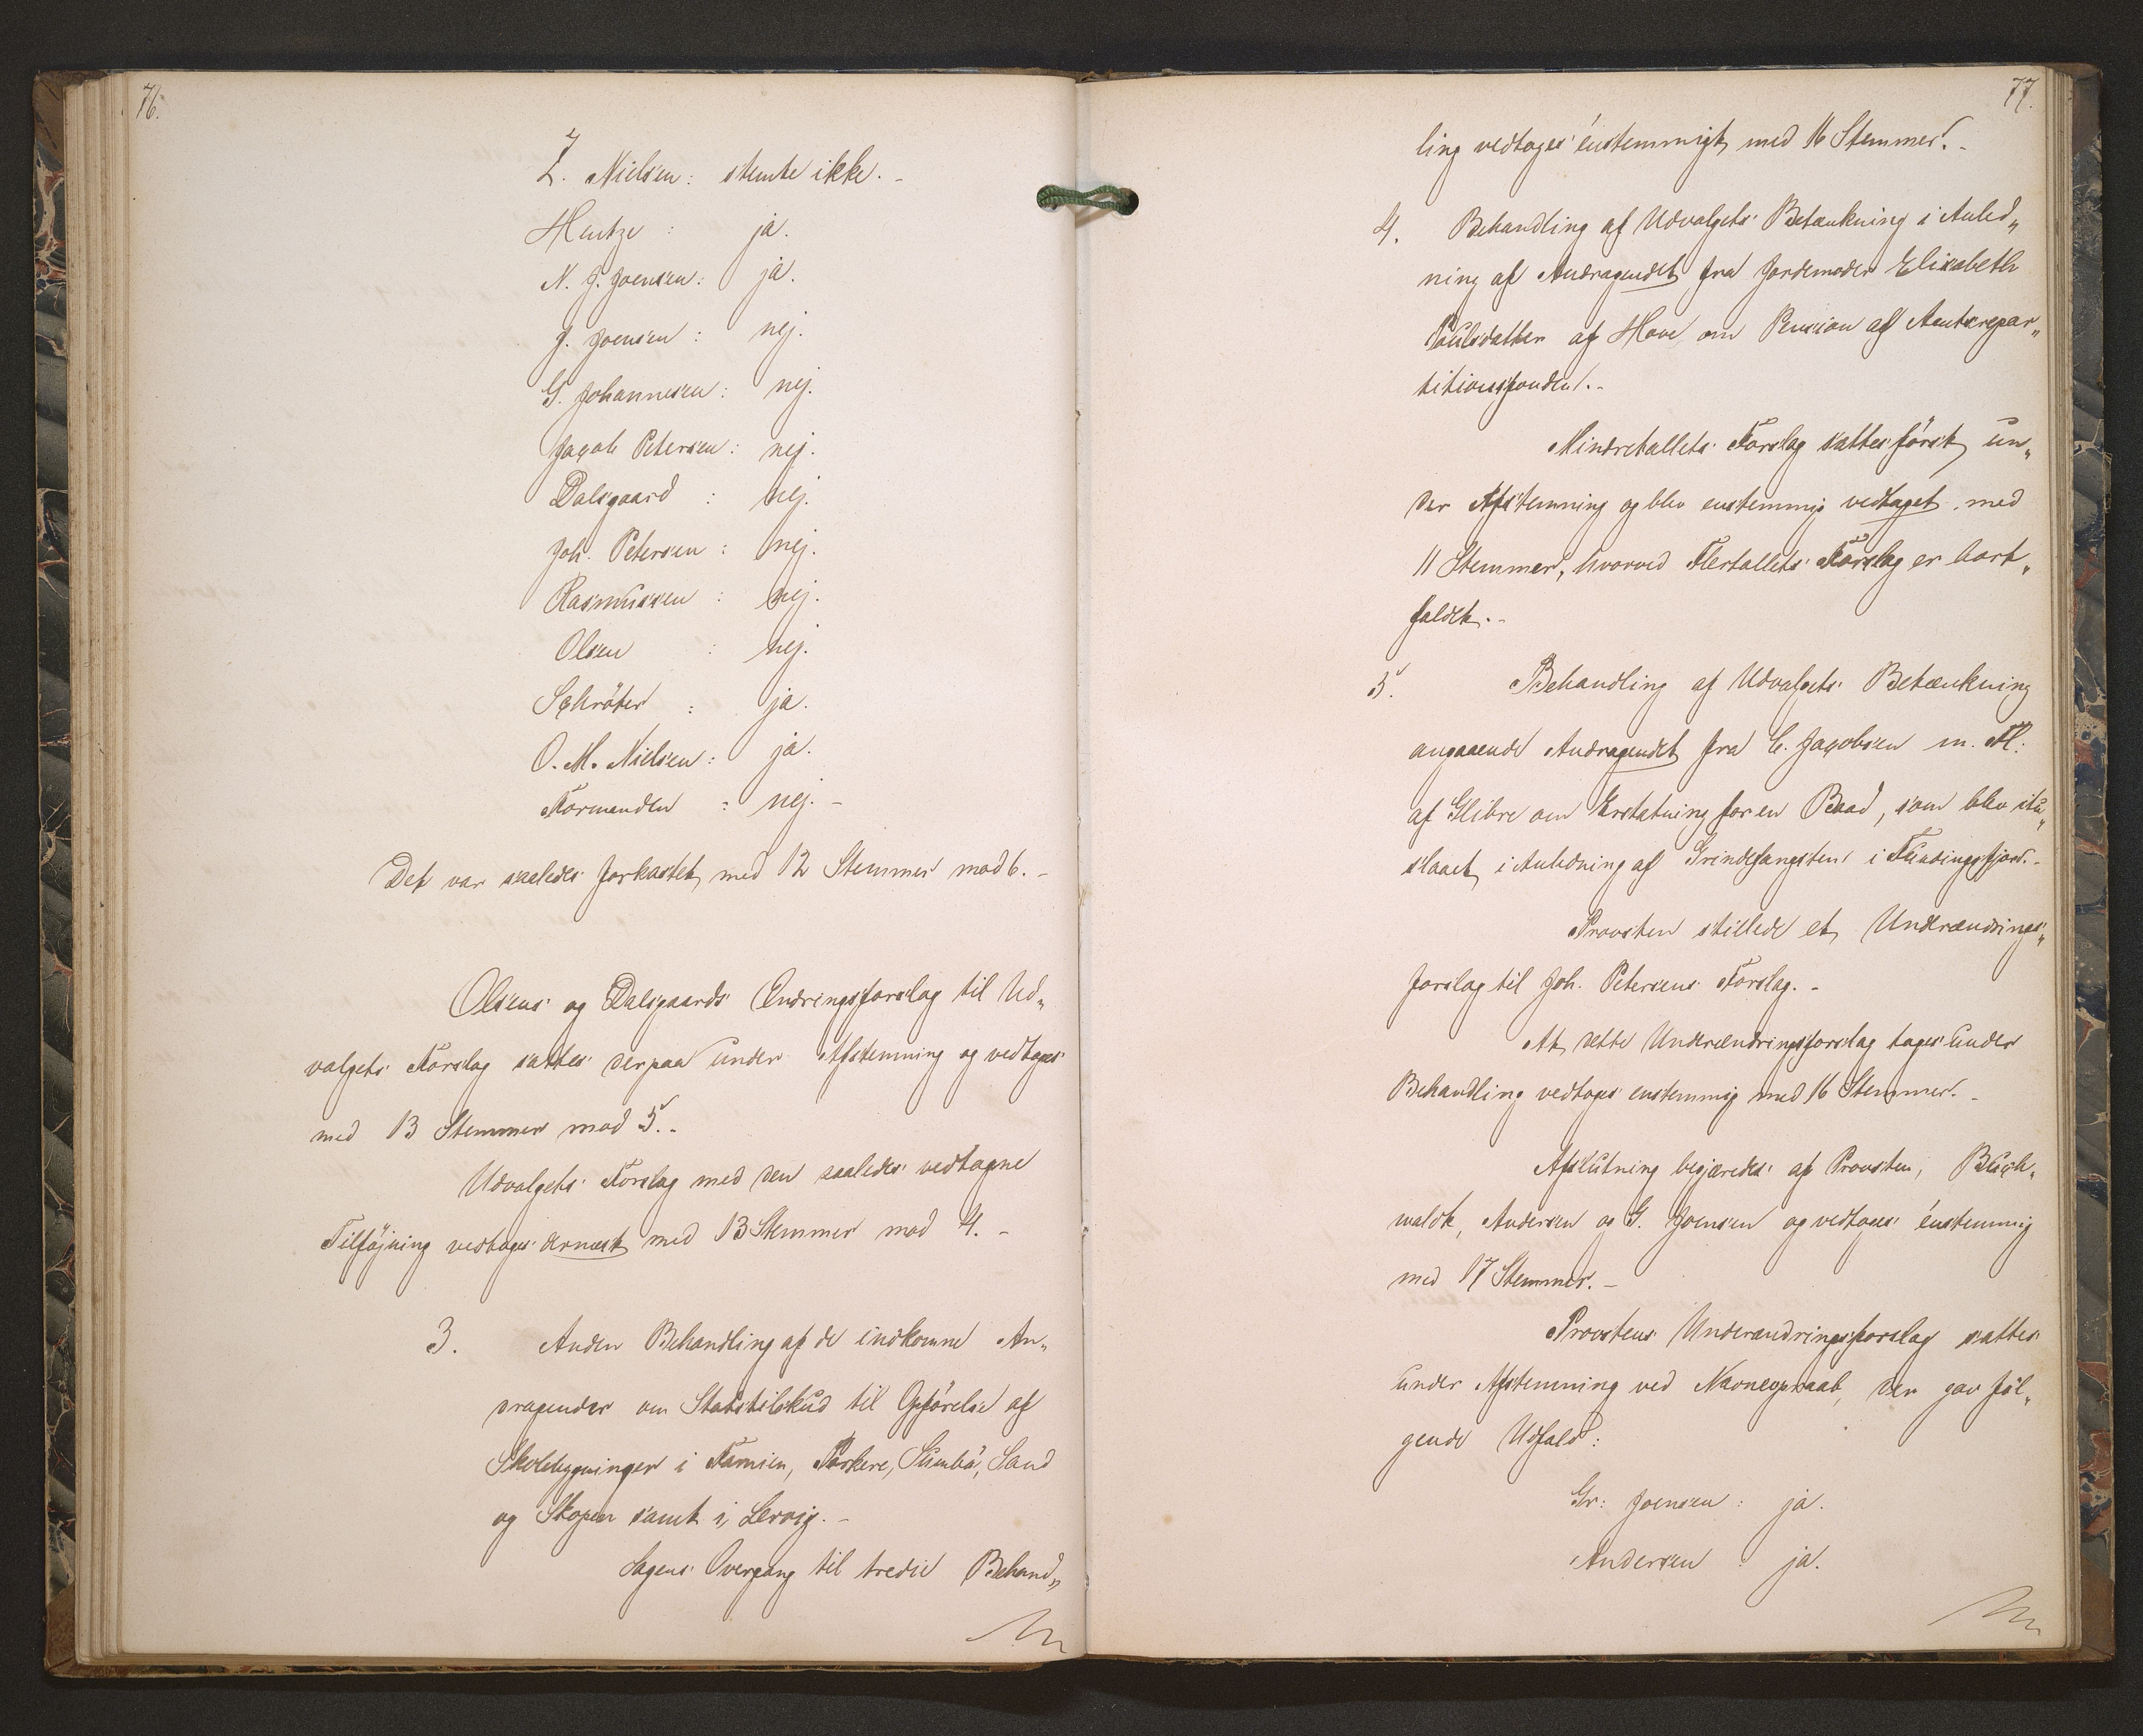 76.
Z. Nielsen: stemte ikke. -
Hentze : ja.
N. J. Joensen: ja.
J. Joensen : nej.
G. Johannesen: nej.
Jacob Petersen: nej.
Dalsgaard : nej.
Joh. Petersen : nej.
Rasmussen : nej.
Olsen : nej.
Schröter : ja.
O. M. Nielsen: ja.
Formanden : nej. -
Det var saaledes forkastet med 12 Stemmer mod 6. -
Olsens og Dalsgaards Ændringsforslag til Ud„
valgets Forslag sattes derpaa under Afstemning og vedtoges
med 13 Stemmer mod 5. -
Udvalgets Forslag med den saaledes vedtagne
Tilföjning vedtoges dernæst med 13 Stemmer mod 4. -
3. Anden Behandling af de indkomne An„
dragender om Statstilskud til Opförelse af
Skolebygninger i Famien, Porkere, Sumbö, Sand
og Skopen samt i Lervig. -
Sagens Overgang til tredie Behand„
77.
ling vedtoges énstemmigt med 16 Stemmer. -
4. Behandling af Udvalgets Betænkning i Anled„
ning af Andragendet fra Jordemoder Elisabeth
Poulsdatter af Hove om Pension af Amtsrepar„
titionsfonden. -
Mindretallets Forslag sattes först un„
der Afstemning og blev enstemmig vedtaget med
11 Stemmer, hvorved Flertallets Forslag er bort„
faldet. -
5. Behandling af Udvalgets Betænkning
angaaende Andragendet fra C. Jacobsen m. Fl.
af Glibre om Erstatning for en Baad, som blev itu„
slaaet i Anledning af Grindefangsten i Fundingsfjord. -
Provsten stillede et Underændrings„
forslag til Joh. Petersens Forslag. -
At dette Underændringsforslag toges under
Behandling vedtoges enstemmig med 16 Stemmer. -
Afslutning begjæredes af Provsten, Buch„
waldt, Andersen og G. Joensen og vedtoges énstemmig
med 17 Stemmer. -
Provstens Underændringsforslag sattes
under Afstemning ved Navneopraab, der gav föl„
gende Udfald:
Gr: Joensen : ja.
Andersen : ja.